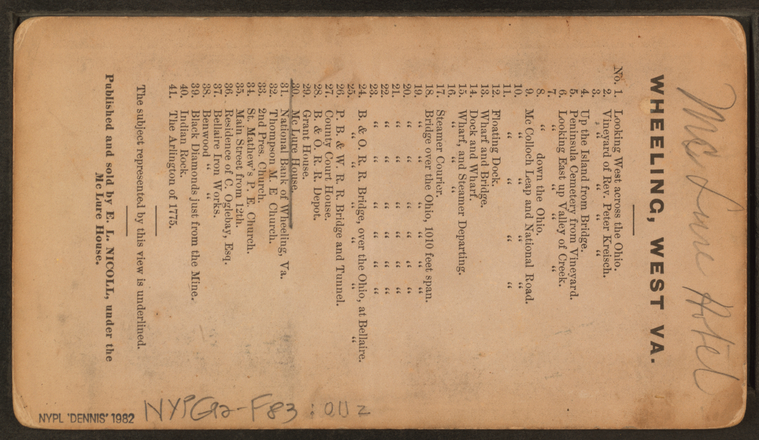 Mc Lure Hotel
WHEELING, WEST VA.
No. 1. Looking West across the Ohio.
2. Vineyard of Rev. Peter Kreisch.
3. " " " "
4. Up the Island from Bridge.
5. Peninsula Cemetery from Vineyard.
6. Looking East up Valley of Creek.
7. " " " "
8. " down the Ohio.
9. Mc Colloch Leap and National Road.
10. " " " "
11. " " " "
12. Floating Dock.
13. Wharf and Bridge.
14. Dock and Wharf.
15. Wharf, and Steamer Departing.
16. " " "
17. Steamer Courier.
18. Bridge over the Ohio, 1010 feet span.
19. " " " " "
20. " " " " "
21. " " " " "
22. " " " " "
23. " " " " "
24. B. & O. R. R. Bridge, over the Ohio, at Bellaire.
25. " " " "
26. P. B. & W. R. R. Bridge and Tunnel.
27. County Court House.
28. B. & O. R. R. Depot.
29. Grant House.
30. Mc Lure House.
31. National Bank of Wheeling, Va.
32. Thompson M. E. Church.
33. 2nd Pres. Church.
34. St. Mathew's P. E. Church.
35. Main Street from 12th.
36. Residence of C. Oglebay, Esq.
37. Bellaire Iron Works.
38. Benwood " "
39. Black Diamonds just from the Mine.
40. Indian Rock.
41. The Arlington of 1775.
The subject represented by this view is underlined.
Published and sold by E. L. NICOLL, under the
Mc Lure House.
NYPL 'DENNIS' 1982
NYPG92-F83:002